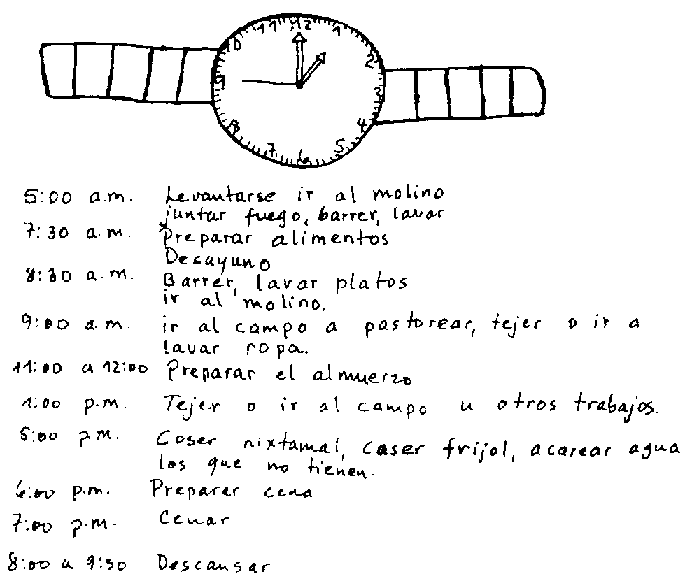 11 12 1
10 2
9 3
8 4
7 6 5
5:00 a.m. Levantarse ir al molino
juntar fuego, barrer, lavar
7:30 a.m. Preparar alimentos
Desayuno
8:30 a.m. Barrer, lavar platos
ir al molino.
9:00 a.m. ir al campo a pastorear, tejer o ir a
lavar ropa.
11:00 a 12:00 Preparar el almuerzo
1:00 p.m. Tejer o ir al campo u otros trabajos.
5:00 p.m. Coser nixtamal, coser frijol, acarear agua
los que no tienen.
6:00 p.m. Preparar cena
7:00 p.m. Cenar
8:00 a 9:30 Descansar